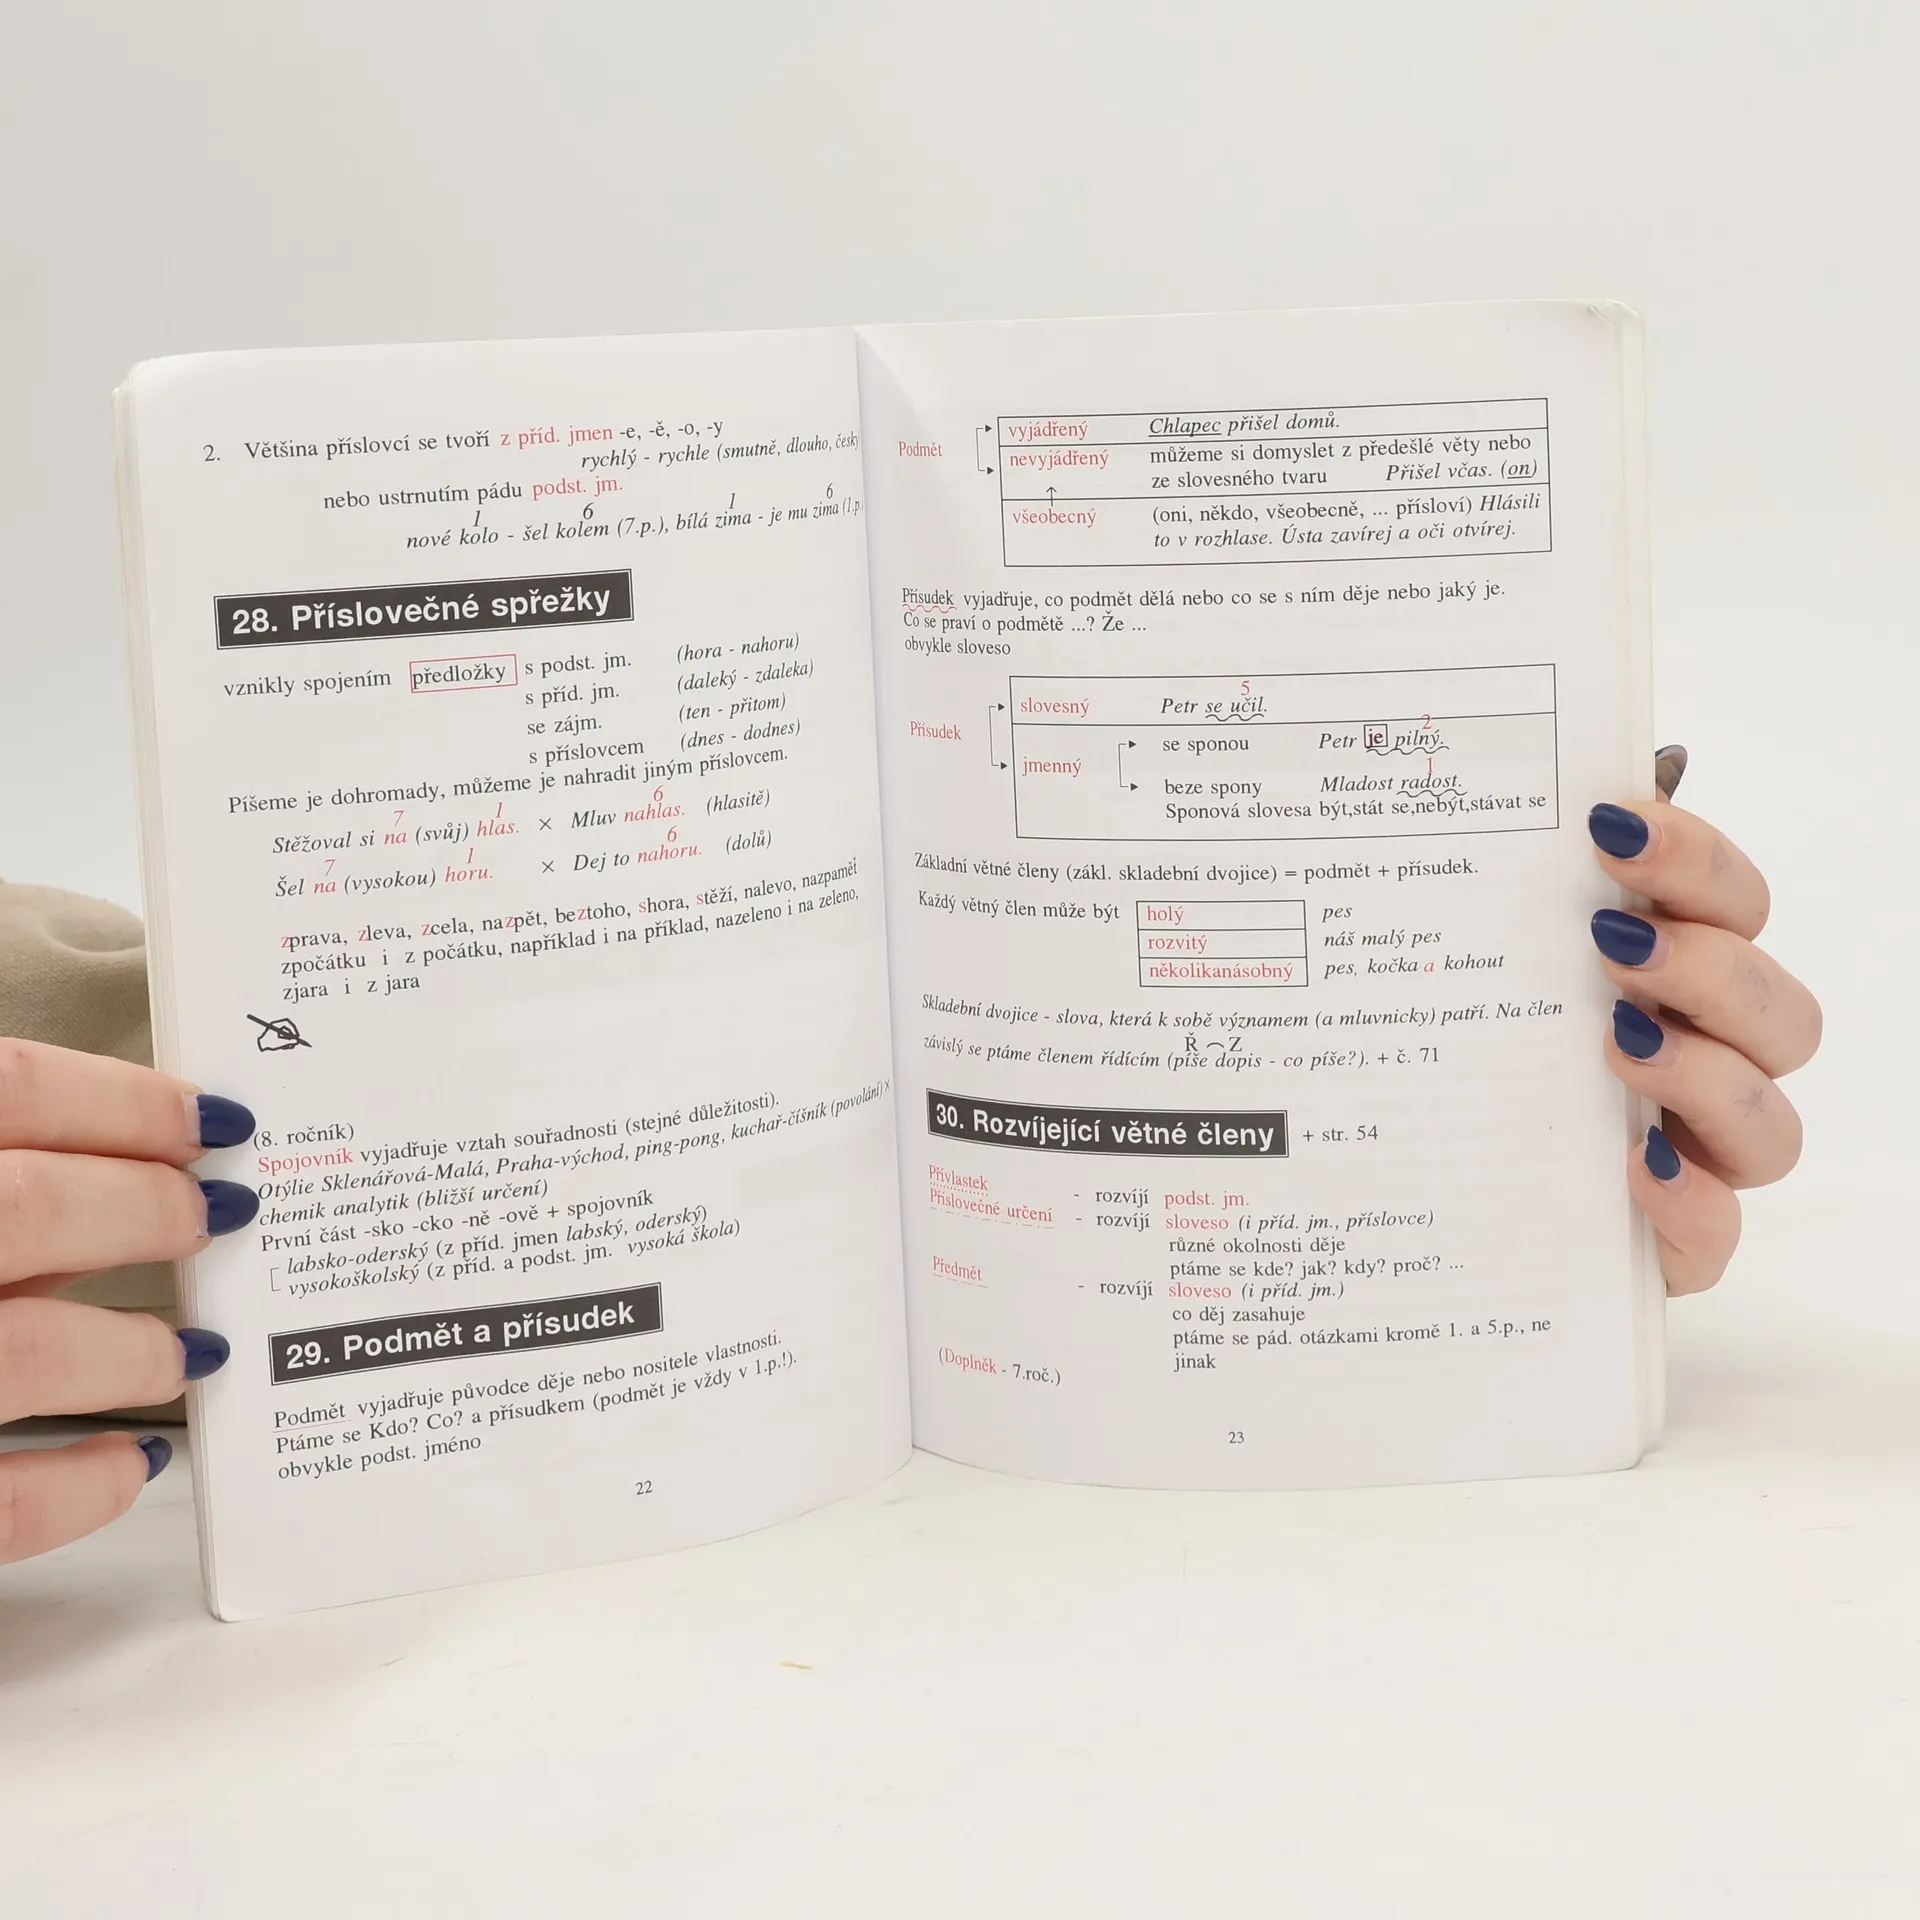 2. Většina příslovcí se tvoří z příd. jmen -e, -ě, -o, -y
rychlý - rychle (smutně, dlouho, česky
nebo ustrnutím pádu podst. jm.
1 6 1 6
nové kolo - šel kolem (7.p.), bílá zima - je mu zima (1.p.
28. Příslovečné spřežky
vznikly spojením předložky s podst. jm. (hora - nahoru)
s příd. jm. (daleký - zdaleka)
se zájm. (ten - přitom)
s příslovcem (dnes - dodnes)
Píšeme je dohromady, můžeme je nahradit jiným příslovcem.
7 1 6
Stěžoval si na (svůj) hlas. × Mluv nahlas. (hlasitě)
7 1 6
Šel na (vysokou) horu. × Dej to nahoru. (dolů)
zprava, zleva, zcela, nazpět, beztoho, shora, stěží, nalevo, nazpaměť
zpočátku i z počátku, například i na příklad, nazeleno i na zeleno,
zjara i z jara
(8. ročník)
Spojovník vyjadřuje vztah souřadnosti (stejné důležitosti).
Otýlie Sklenářová-Malá, Praha-východ, ping-pong, kuchař-číšník (povolání) ×
chemik analytik (bližší určení)
První část -sko -cko -ně -ově + spojovník
labsko-oderský (z příd. jmen labský, oderský)
vysokoškolský (z příd. a podst. jm. vysoká škola)
29. Podmět a přísudek
Podmět vyjadřuje původce děje nebo nositele vlastnosti.
Ptáme se Kdo? Co? a přísudkem (podmět je vždy v 1.p.!).
obvykle podst. jméno
22
Podmět vyjádřený Chlapec přišel domů.
nevyjádřený můžeme si domyslet z předešlé věty nebo
ze slovesného tvaru Přišel včas. (on)
všeobecný (oni, někdo, všeobecně, ... přísloví) Hlásili
to v rozhlase. Ústa zavírej a oči otvírej.
Přísudek vyjadřuje, co podmět dělá nebo co se s ním děje nebo jaký je.
Co se praví o podmětě ...? Že ...
obvykle sloveso
5
Přísudek slovesný Petr se učil.
2
jmenný se sponou Petr je pilný.
1
beze spony Mladost radost.
Sponová slovesa být,stát se,nebýt,stávat se
Základní větné členy (zákl. skladební dvojice) = podmět + přísudek.
Každý větný člen může být holý pes
rozvitý náš malý pes
několikanásobný pes, kočka a kohout
Skladební dvojice - slova, která k sobě významem (a mluvnicky) patří. Na člen
Ř Z
závislý se ptáme členem řídícím (píše dopis - co píše?). + č. 71
30. Rozvíjející větné členy + str. 54
Přívlastek - rozvíjí podst. jm.
Příslovečné určení - rozvíjí sloveso (i příd. jm., příslovce)
různé okolnosti děje
ptáme se kde? jak? kdy? proč? ...
Předmět - rozvíjí sloveso (i příd. jm.)
co děj zasahuje
ptáme se pád. otázkami kromě 1. a 5.p., ne
jinak
(Doplněk - 7.roč.)
23